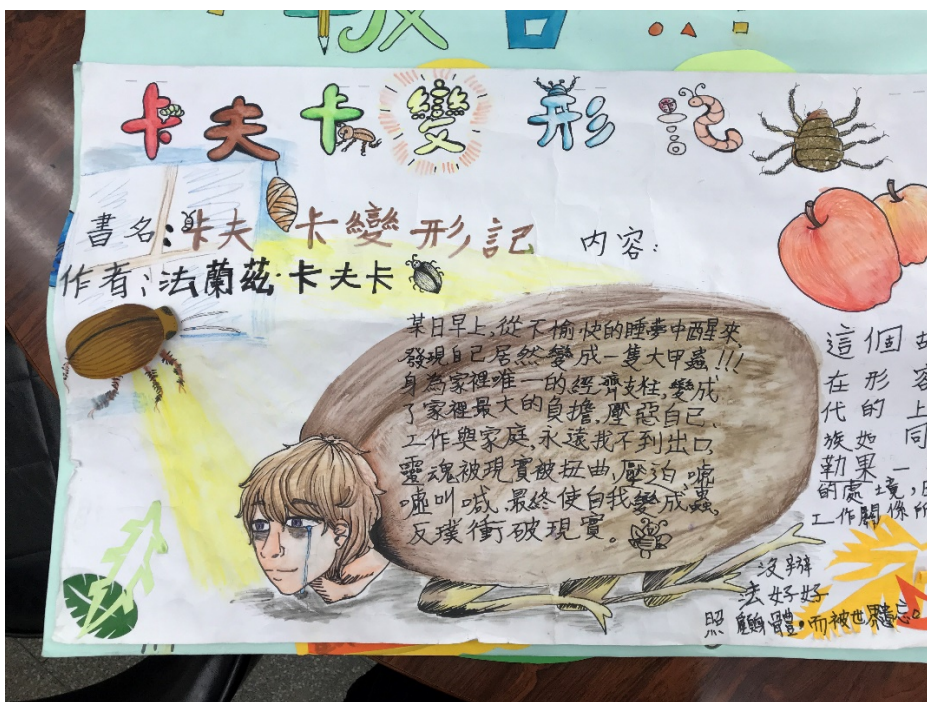 卡夫卡變形記
書名:卡夫卡變形記
作者:法蘭茲·卡夫卡
內容:
某日早上,從不愉快的睡夢中醒來,
發現自己居然變成一隻大甲蟲!!!
身為家裡唯一的經濟支柱,變成
了家裡最大的負擔,壓惡自己、
工作與家庭,永遠找不到出口,
靈魂被現實被扭曲,壓迫,噓
噓叫喊,最終使自我變成蟲,
反璞衝破現實。
這個
在形容
代的上
族如同
勒果一
的處境,
工作關係所
沒辦
去好好
照顧身體,而被世界遺忘。